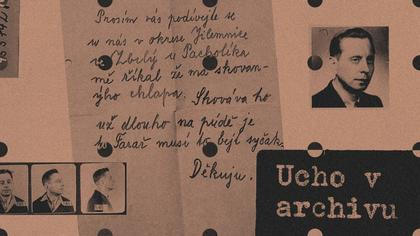 Prosím vás podívejte se
u nás v okrese Jilemnice
v Zbelý u Pacholíka
mě říkal že má skovan-
ýho chlapa. Skovává ho
už dlouho na půdě je
to Farář musí to bejt syčák.
Děkuju.
Ucho v
archivu